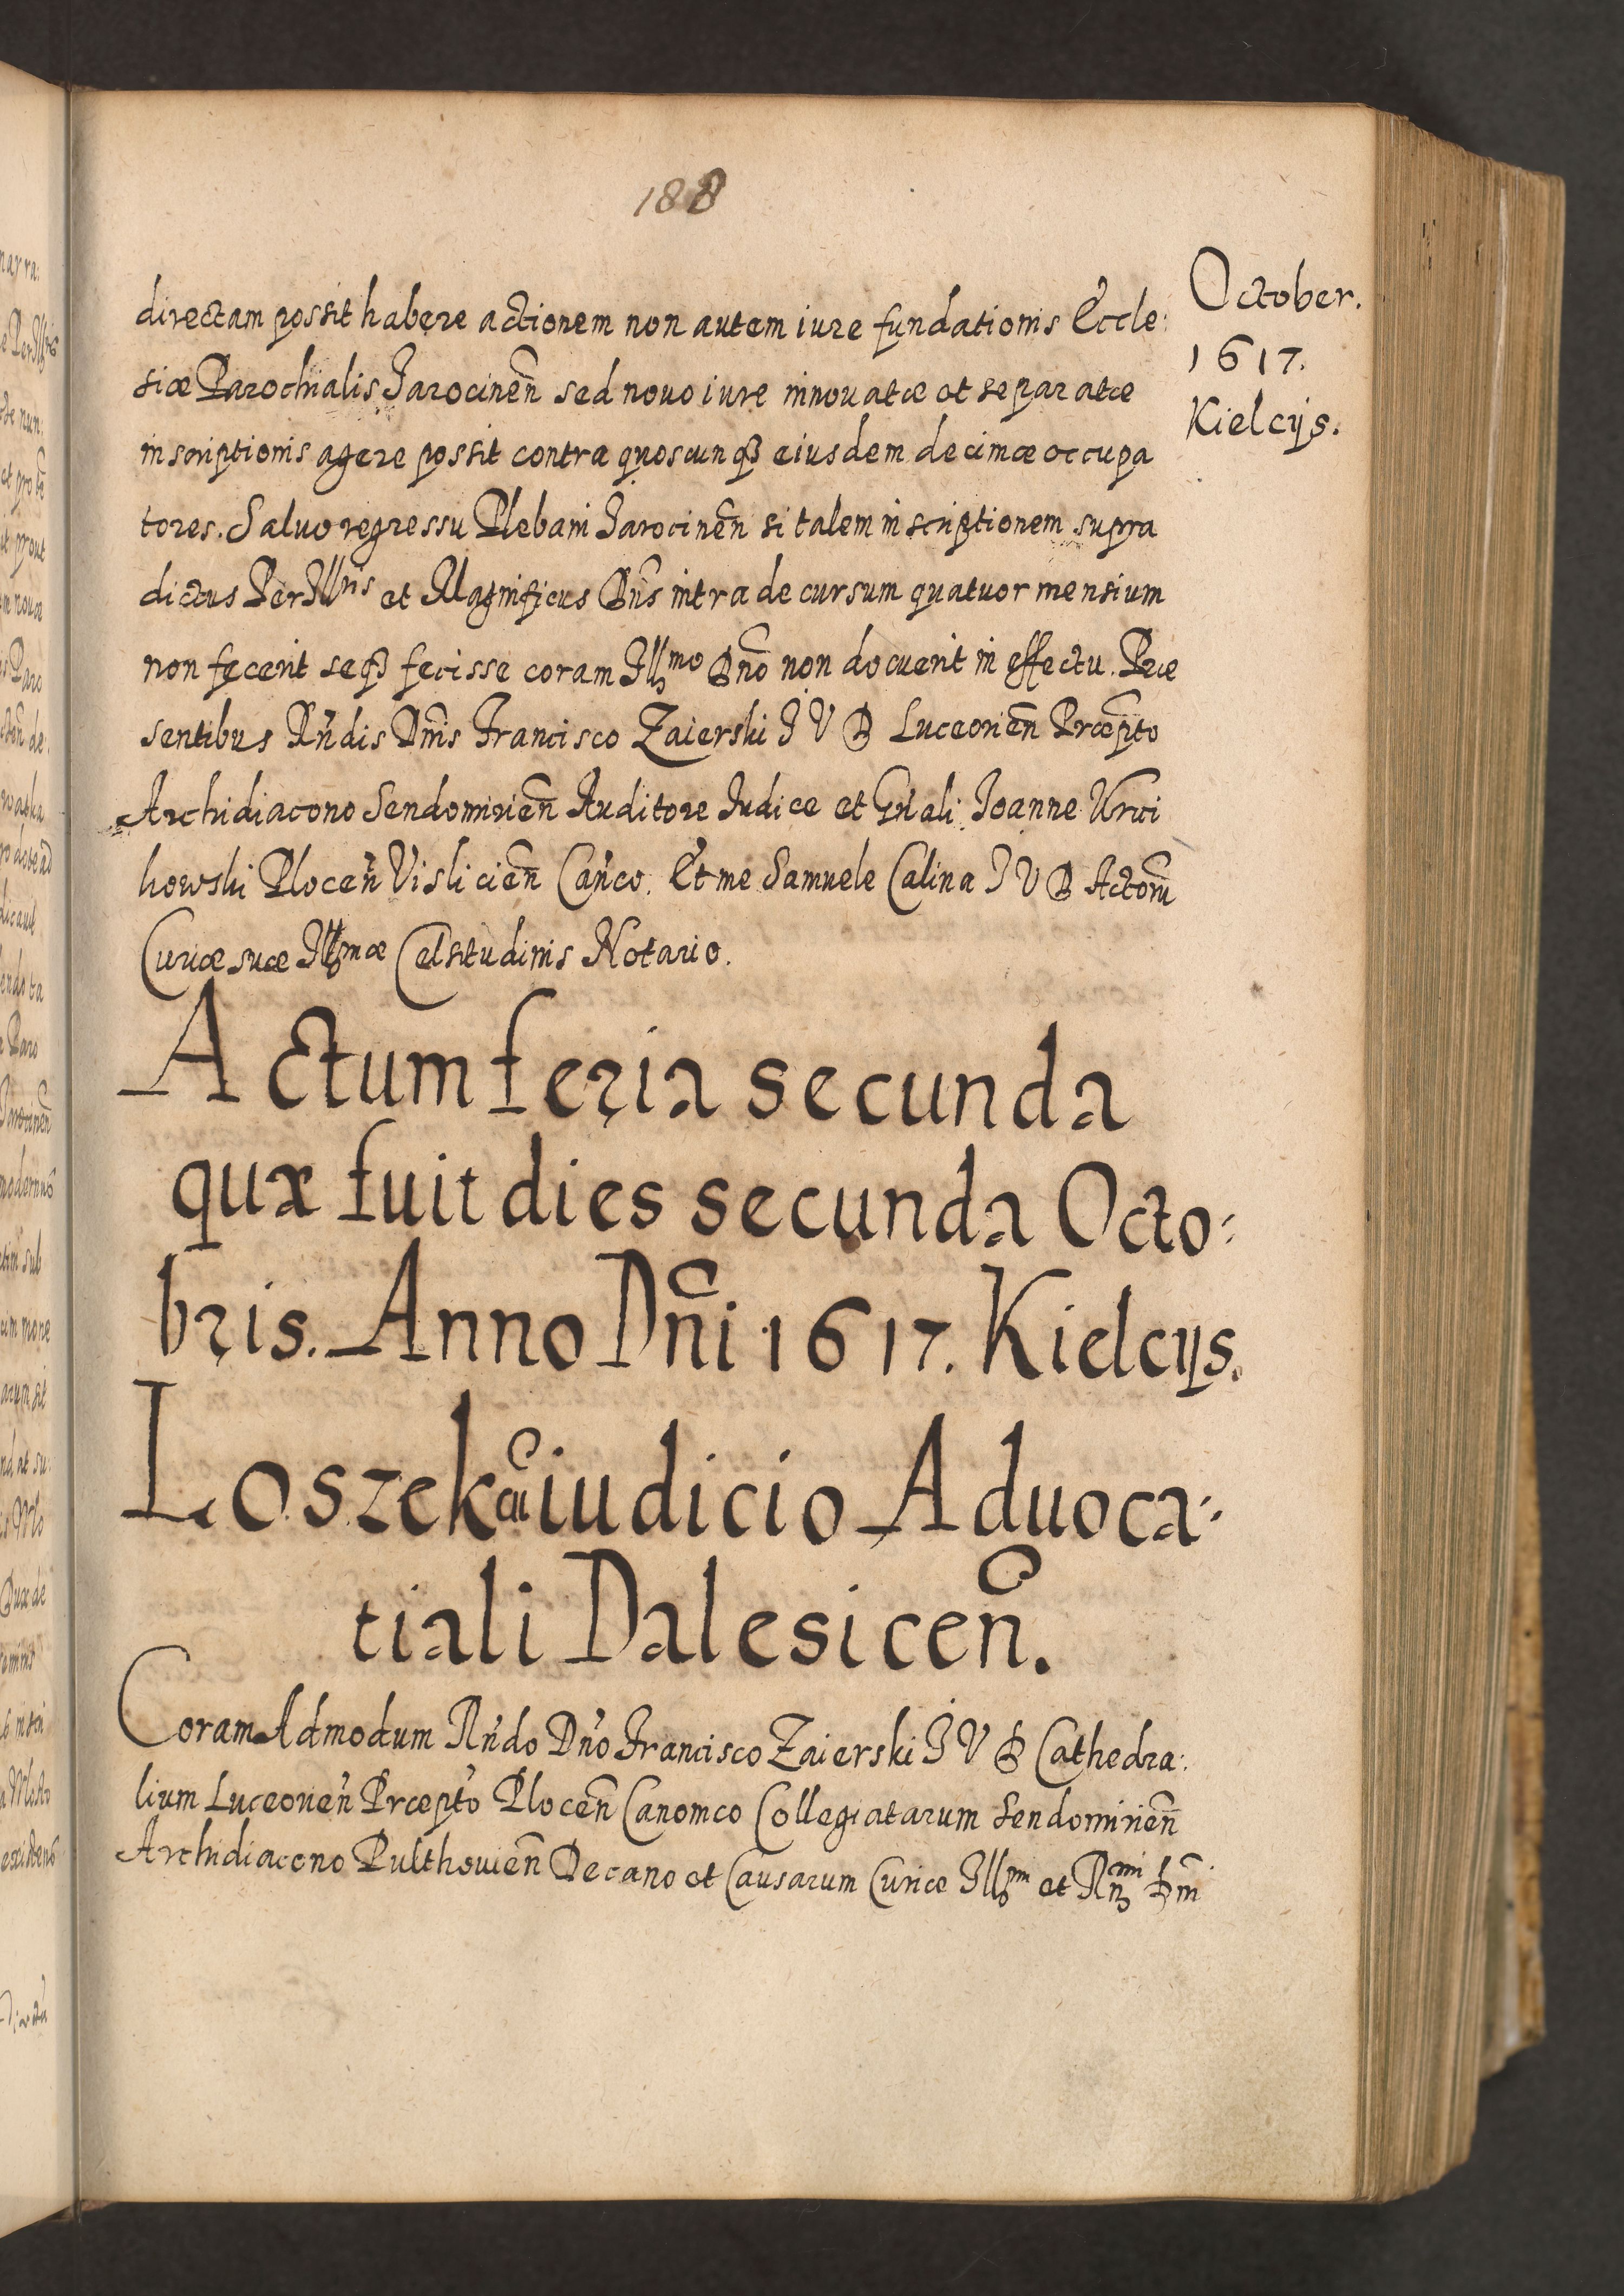 188
October.
1617.
Kielcijs.
directam possit habere actionem non autem iure fundationis Eccle:
siæ Parochialis Jarocinen̄ sed nouo iure innouatæ et separatæ
inscriptionis agere possit contra quoscunqȝ eiusdem decimæ occupa
tores. Saluo regressu Plebani Jarocinen̄ si talem inscriptionem supra
dictus PerIllris et Magnificus Dn̄s intra decursum quatuor mensium
non fecerit seqȝ fecisse coram Illmo Dno̅ non docuerit in effectu. Præ
sentibus Rn̄dis Dn̄is Francisco Zaierski J V D Luceorien̄ Præp̄to
Archidiacono Sendomirien̄ Auditore Iudice et Gn̄ali Joanne Vrui
howski Plocen̄ Vislicien̄ Can̄co. Et me Samuele Calina J V D Actoru̅
Curiæ suæ Illmæ Celsitudinis Notario.
Actum feria secunda
quæ fuit dies secunda Octo:
bris. Anno Dn̄i 1617. Kielcijs.
Loszek cu̅ iudicio Aduoca:
tiali Dalesicen̄.
Coram Admodum Rn̄do Dn̄o Francisco Zaierski J V D Cathedra:
lium Luceorien̄ Præpto̅ Plocen̄ Canonico Collegiatarum Sendomirien̄
Archidiacono Pulthouien̄ Decano et Causarum Curiæ Illm et Rn̄mi Dn̄i